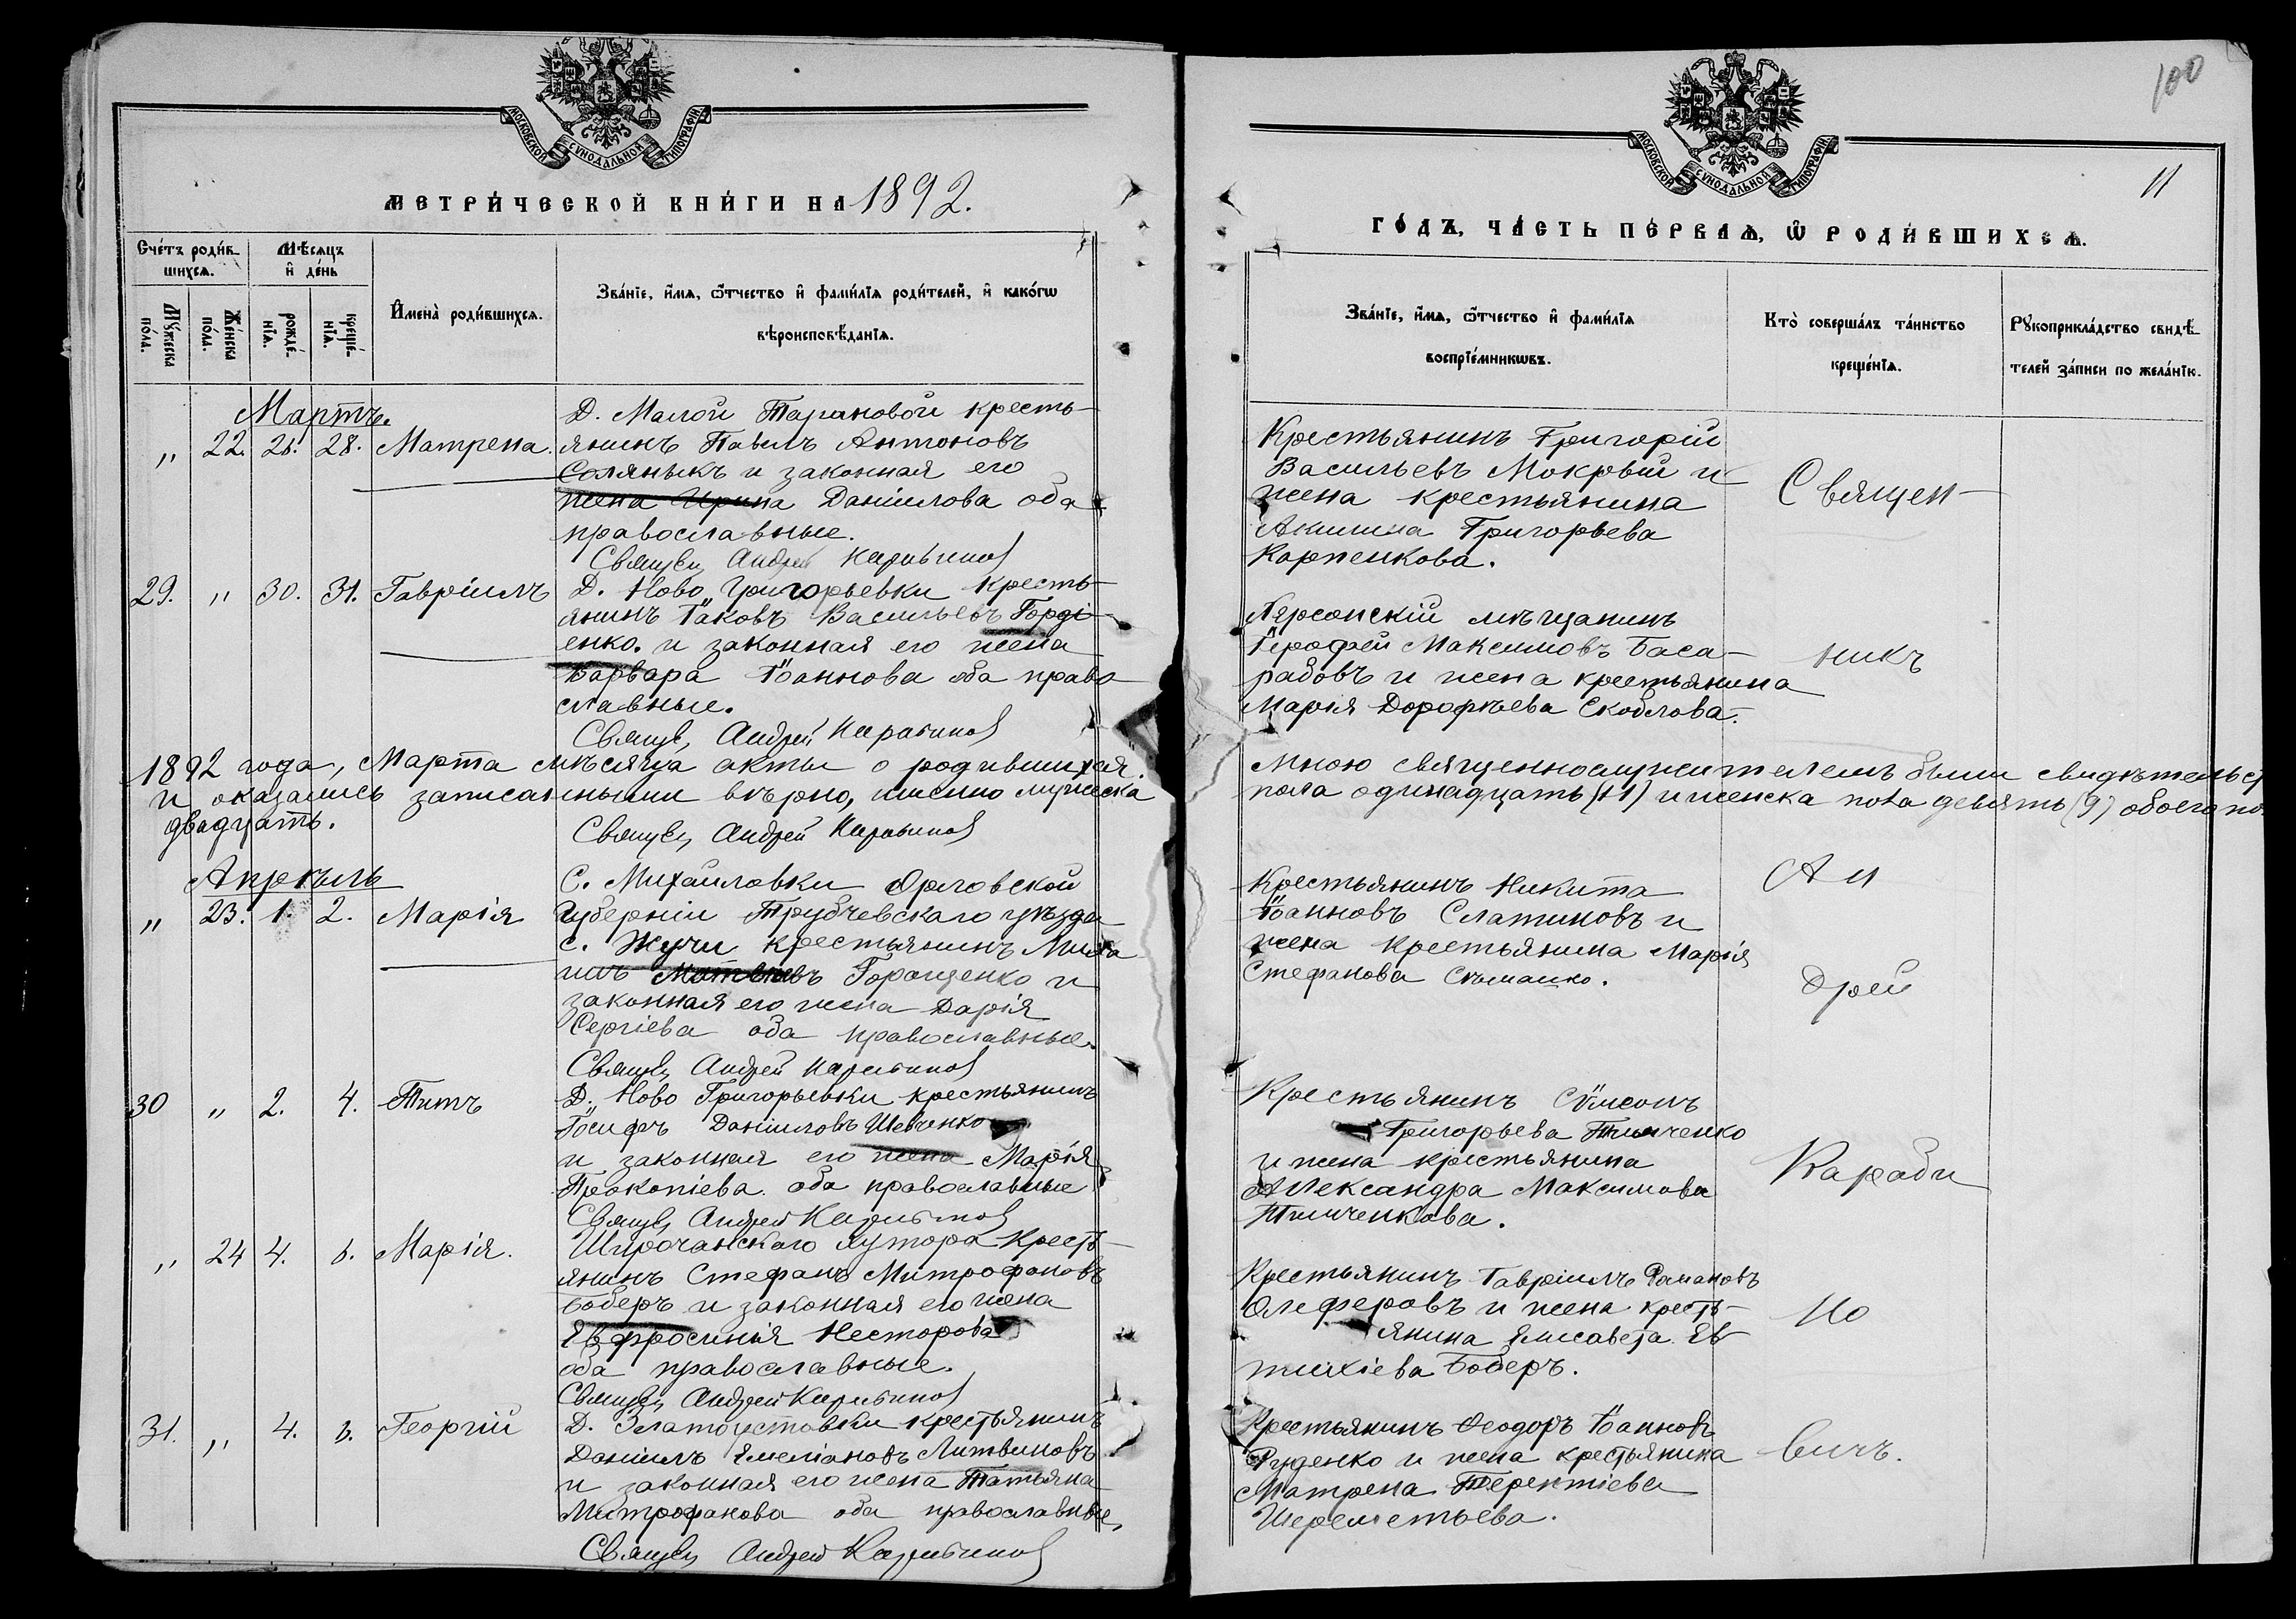 МОСКОВСКОЙ СѴНОДАЛЬНОЙ ТИПОГРАФІИ.
МЕТРИ́ЧЕСКОЙ КНИ́ГИ НА 1892.
Сче́тъ роди́в-
шихсѧ.
Мѣ́сѧцъ
и҆ де́нь
Мꙋ́жеска
по́ла.
Же́нска
по́ла.
рожде́-
нїѧ.
креще́-
нїѧ.
И҆мена̀ роди́вшихсѧ.
Зва́нїе, и҆́мѧ, ѻ҆́тчество и҆ фами́лїѧ роди́телей, и҆ како́гѡ
вѣроисповѣ́данїѧ.
Мартъ.
Д. Малой Тарановой кресть-
„ 22. 26. 28. Матрена. янинъ Павелъ Антоновъ
Соляныкъ и законная его
жена Ирина Даніилова оба
православные.
Священ. Андрей Карабиновичъ
29. „ 30. 31. Гавріилъ Д. Ново Григорьевки кресть-
янинъ Іаковъ Васильевъ Горді-
енко. и законная его жена
Варвара Іоаннова оба право-
славные.
Священ. Андрей Карабиновичъ
1892 года, Марта мѣсяца акты о родившихся
и оказались записанными вѣрно, именно мужеска
двадцать.
Священ. Андрей Карабиновичъ
Апрѣль
С. Михайловки Орловской
„ 23. 1. 2. Марія Губерніи Трубчевскаго уѣзда
с. Жучи крестьянинъ Миха-
илъ Матвѣевъ Горащенко и
законная его жена Дарія
Сергіева оба православные.
Священ. Андрей Карабиновичъ
30 „ 2. 4. Титъ Д. Ново Григорьевки крестьянинъ
Іосифъ Даніиловъ Шевченко
и законная его жена Марія
Прокопіева оба православные
Священ. Андрей Карабиновичъ
„ 24 4. 6. Марія. Широчанскаго хутора кресть-
янинъ Стефанъ Митрофановъ
Боберъ и законная его жена
Евфросинія Несторова
оба православные.
Священ. Андрей Карабиновичъ
31. „ 4. 6. Георгій Д. Златоустовки крестьянинъ
Даніилъ Емеліановъ Литвиновъ
и законная его жена Татьяна
Митрофанова оба православные,
Священ. Андрей Карабиновичъ
100
11
МОСКОВСКОЙ СѴНОДАЛЬНОЙ ТИПОГРАФІИ.
ГО́ДЪ, ЧА́СТЬ ПЕ́РВАѦ, Ѡ҆ РОДИ́ВШИХСѦ.
Зва́нїе, и҆́мѧ, ѻ҆́тчество и҆ фами́лїѧ
воспрїе́мникѡвъ.
Кто̀ соверша́лъ та́инство
креще́нїѧ.
Рꙋкоприкла́дство свидѣ́-
телей за́писи по жела́нїю.
Крестьянинъ Григорій
Васильевъ Мокрый и
жена крестьянина
Акилина Григорьева
Карпенкова.
Священ-
Херсонскій мѣщанинъ
Іерофей Максимовъ Баса-
рабовъ и жена крестьянина
Марія Дорофѣева Скоблова.
никъ
Мною священнослужителемъ были свидѣтельст
пола одинадцать (11) и женска пола девять (9) обоего по
Крестьянинъ Никита
Іоанновъ Слатиновъ и
жена крестьянина Марія
Стефанова
Ан
дрей
Крестьянинъ Сѵмеонъ
Григорьева Тимченко
и жена крестьянина
Александра Максимова
Тимченкова.
Караби
Крестьянинъ Гавріилъ Романовъ
Олеферовъ и жена кресть-
янина Елисавета Ев-
тихіева Боберъ.
но
Крестьянинъ Ѳеодоръ Іоанновъ
Руденко и жена крестьянина
Матрена Терентіева
Шереметьева.
вичъ.